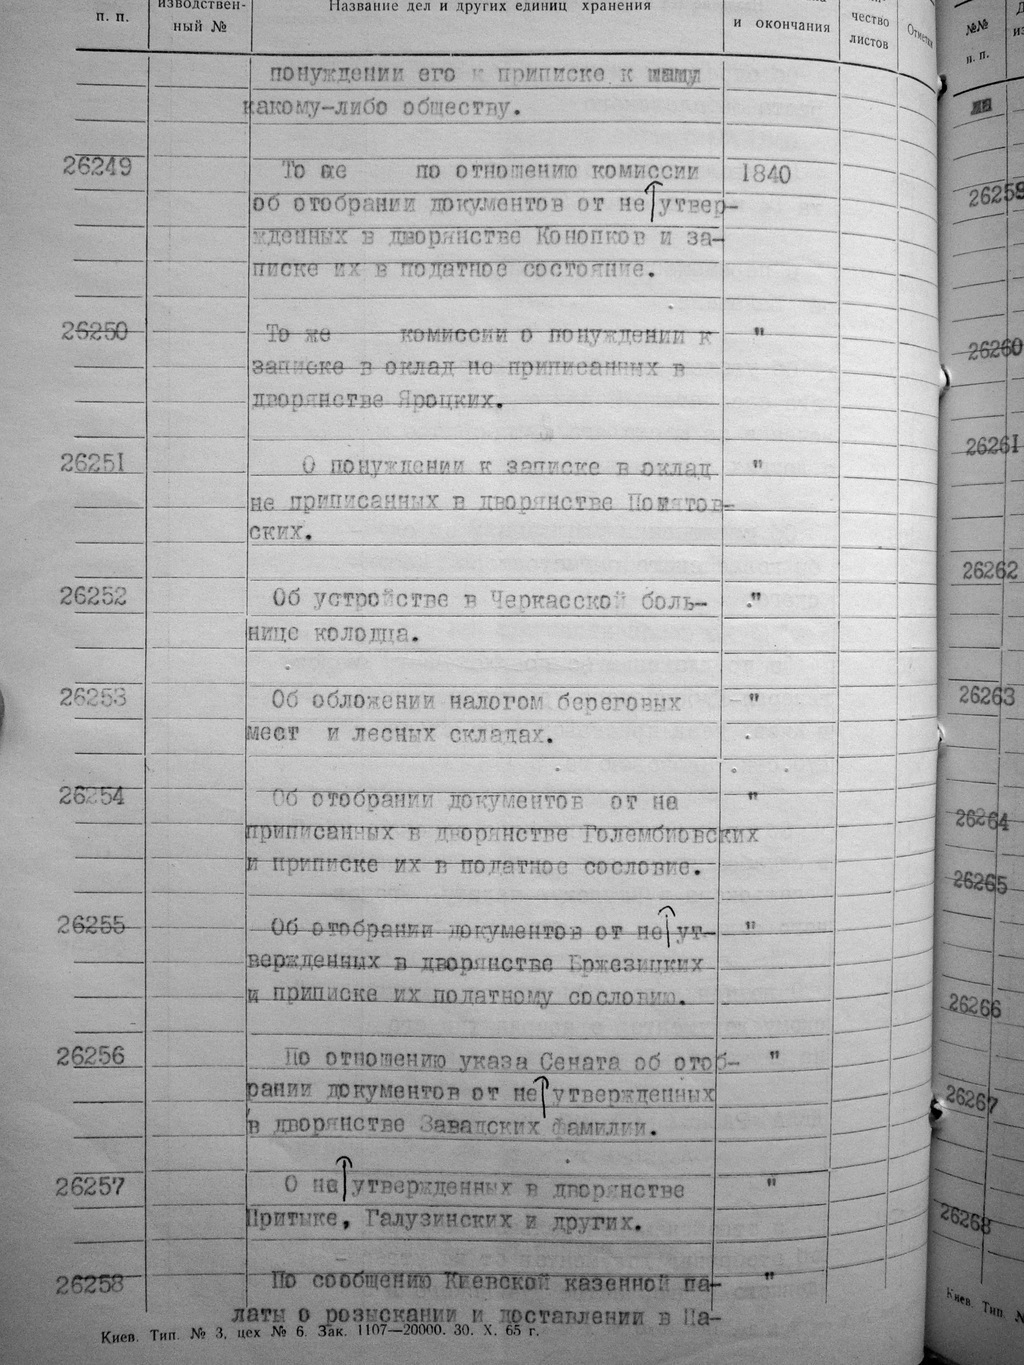 п. п.
изводствен-
ный №
Название дел и других единиц хранения
и окончания
чество
листов
Отметки
понуждении его к приписке к
какому-либо обществу.
26249 То же по отношению комиссии 1840
об отобрании документов от не утвер-
жденных в дворянстве Конопков и за-
писке их в податное состояние.
26250 То же комиссии о понуждении к "
записке в оклад не приписанных в
дворянстве Яроцких.
26251 О понуждении к записке в оклад "
не приписанных в дворянстве Понятов-
ских.
26252 Об устройстве в Черкасской боль- "
нице колодца.
26253 Об обложении налогом береговых "
мест и лесных складах.
26254 Об отобрании документов от не "
приписанных в дворянстве Голембиовских
и приписке их в податное сословие.
26255 Об отобрании документов от не ут- "
вержденных в дворянстве Бржезицких
и приписке их податному сословию.
26256 По отношению указа Сената об отоб- "
рании документов от не утвержденных
в дворянстве Завадских фамилии.
26257 О не утвержденных в дворянстве "
Притыке, Галузинских и других.
26258 По сообщению Киевской казенной па- "
латы о розыскании и доставлении в Па-
Киев. Тип. № 3, цех № 6. Зак. 1107—20000. 30. X. 65 г.
№№
п. п.
26259
26260
26261
26262
26263
26264
26265
26266
26267
26268
Киев. Тип. №